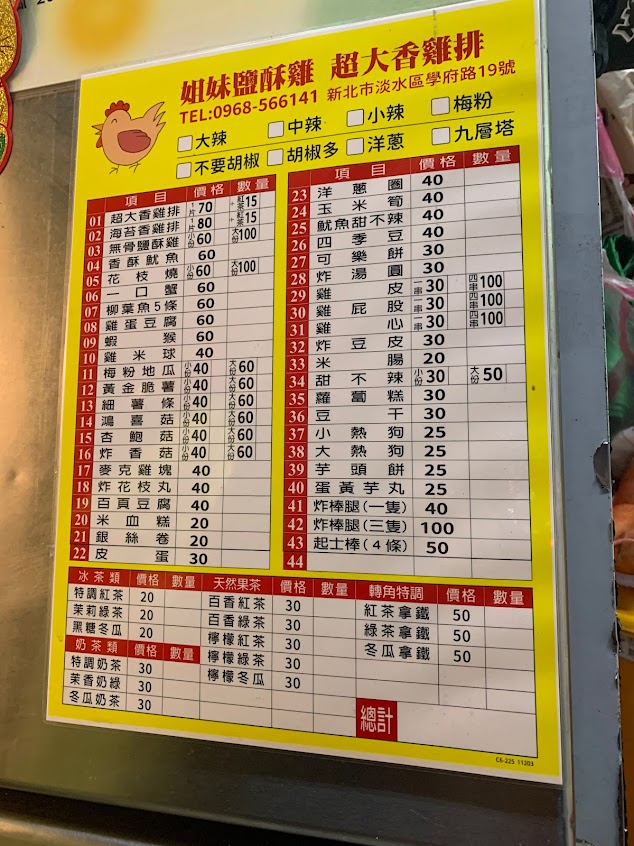 姐妹鹽酥雞 超大香雞排
TEL:0968-566141 新北市淡水區學府路19號
大辣 中辣 小辣 梅粉
不要胡椒 胡椒多 洋蔥 九層塔
項目 價格 數量
01 超大香雞排 1片 70 +紅茶15
02 海苔香雞排 1片 80 +紅茶15
03 無骨鹽酥雞 小份 60 大份 100
04 香酥魷魚 60
05 花枝燒 小份 60 大份 100
06 一口蟹 60
07 柳葉魚5條 60
08 雞蛋豆腐 60
09 蝦猴 60
10 雞米球 40
11 梅粉地瓜 小份 40 大份 60
12 黃金脆薯 小份 40 大份 60
13 細薯條 小份 40 大份 60
14 鴻喜菇 小份 40 大份 60
15 杏鮑菇 小份 40 大份 60
16 炸香菇 小份 40 大份 60
17 麥克雞塊 40
18 炸花枝丸 40
19 百頁豆腐 40
20 米血糕 20
21 銀絲卷 20
22 皮蛋 30
項目 價格 數量
23 洋蔥圈 40
24 玉米筍 40
25 魷魚甜不辣 40
26 四季豆 40
27 可樂餅 30
28 炸湯圓 30
29 雞皮 一串 30 四串 100
30 雞屁股 一串 30 四串 100
31 雞心 一串 30 四串 100
32 炸豆皮 30
33 米腸 20
34 甜不辣 小份 30 大份 50
35 蘿蔔糕 30
36 豆干 30
37 小熱狗 25
38 大熱狗 25
39 芋頭餅 25
40 蛋黃芋丸 25
41 炸棒腿(一隻) 40
42 炸棒腿(三隻) 100
43 起士棒(4條) 50
44
冰茶類 價格 數量
特調紅茶 20
茉莉綠茶 20
黑糖冬瓜 20
奶茶類 價格 數量
特調奶茶 30
茉香奶綠 30
冬瓜奶茶 30
天然果茶 價格 數量
百香紅茶 30
百香綠茶 30
檸檬紅茶 30
檸檬綠茶 30
檸檬冬瓜 30
轉角特調 價格 數量
紅茶拿鐵 50
綠茶拿鐵 50
冬瓜拿鐵 50
總計
C6-225 11203